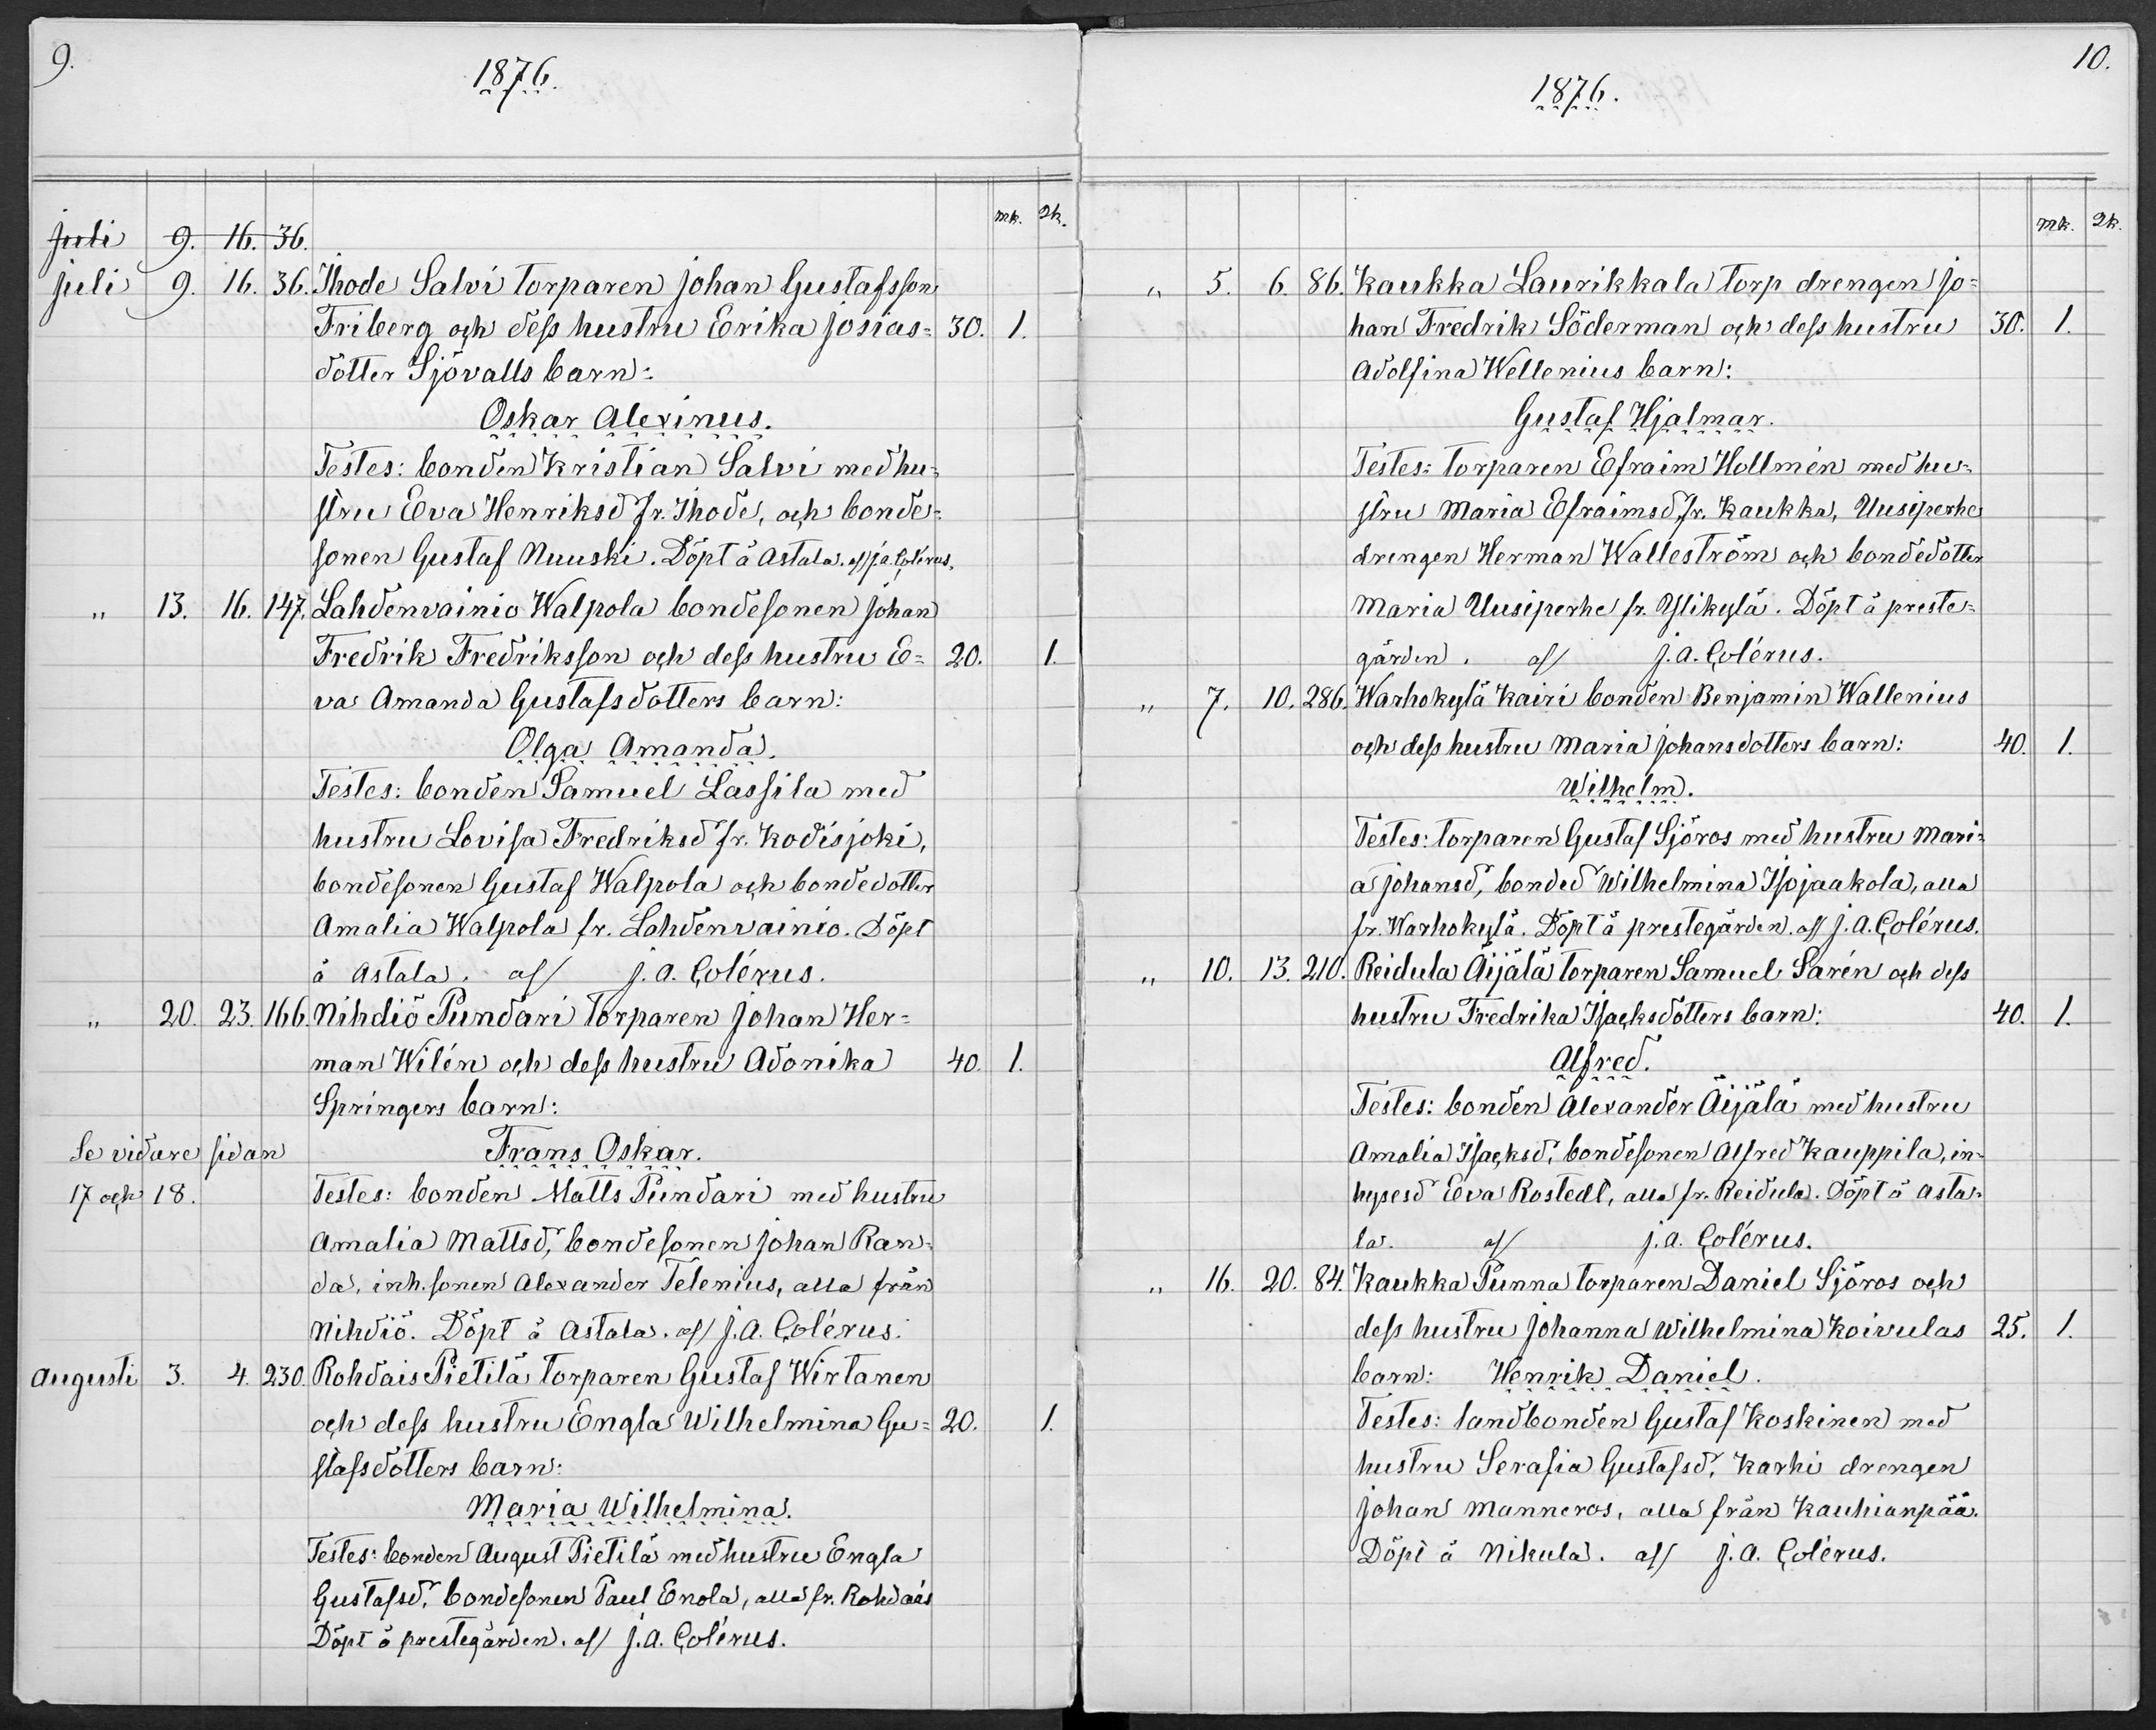 9.
1876.
mk. Qk.
juli 9. 16. 36.
juli 9. 16. 36. Ihode Salvi torparen Johan Gustafsson
Friberg och dess hustru Erika Josias= 30. 1.
dotter Sjövalls barn:
Oskar Alexinus.
Testes: bonden Kristian Salvi med hu=
stru Eva Henriksd fr. Ihode, och bonde=
sonen Gustaf Nuuski. Döpt å Astala. aff J.A. Colérus.
„ 13. 16. 147. Lahdenvainio Walpola bondesonen Johan
Fredrik Fredriksson och dess hustru E= 20. 1.
va Amanda Gustafsdotters barn:
Olga Amanda.
Testes: bonden Samuel Lassila med
hustru Lovisa Fredriksd fr. Kodisjoki,
bondesonen Gustaf Walpola och bondedotter
Amalia Walpola fr. Lahdenvainio. Döpt
å Astala. aff J.A. Colérus.
„ 20. 23. 166. Nihdiö Pundari torparen Johan Her=
man Wilén och dess hustru Adonika 40. 1.
Springers barn:
Se vidare sidan Frans Oskar.
17 och 18. Testes: bonden Matts Pundari med hustru
Amalia Mattsd, bondesonen Johan Ran=
da, inh.sonen Alexander Telenius, alla från
Nihdiö. Döpt å Astala. aff J.A. Colérus.
Augusti 3. 4. 230. Rohdais Pietilä torparen Gustaf Wirtanen
och dess hustru Engla Wilhelmina Gu= 20. 1.
stafsdotters barn:
Maria Wilhelmina.
Testes: bonden August Pietilä med hustru Engla
Gustafsd, bondesonen Paul Enola, alla fr. Rohdais
Döpt å prestegården. aff J.A. Colérus.
10.
1876.
mk. Qk.
„ 5. 6. 86. Kaukka Laurikkala torp drengen Jo=
han Fredrik Söderman och dess hustru 30. 1.
Adolfina Wellenius barn:
Gustaf Hjalmar.
Testes: torparen Efraim Hollmén med hu=
stru Maria Efraimsd, fr. Kaukka, Uusiperhe
drengen Herman Walleström och bondedotter
Maria Uusiperhe fr. Ylikylä. Döpt å preste=
gården. aff J.A. Colérus.
„ 7. 10. 286. Warhokylä Kairi bonden Benjamin Wallenius
och dess hustru Maria Johansdotters barn: 40. 1.
Wilhelm.
Testes: torparen Gustaf Sjöros med hustru Mari=
a Johansd, bonded Wilhelmina Isojaakola, alla
fr. Warhokylä. Döpt å prestegården. aff J.A. Colérus.
„ 10. 13. 210. Reidula Äijälä torparen Samuel Sarén och dess
hustru Fredrika Isacksdotters barn: 40. 1.
Alfred.
Testes: bonden Alexander Äijälä med hustru
Amalia Isacksd, bondesonen Alfred Kauppila, in=
hysesd Eva Rostedt, alla fr. Reidula. Döpt å Asta=
la. aff J.A. Colérus.
„ 16. 20. 84. Kaukka Punna torparen Daniel Sjöros och
dess hustru Johanna Wilhelmina Koivulas 25. 1.
barn: Henrik Daniel.
Testes: landbonden Gustaf Koskinen med
hustru Serafia Gustafsd, Karhi drengen
Johan Manneros, alla från Kauhianpää.
Döpt å Nikula. aff J.A. Colérus.